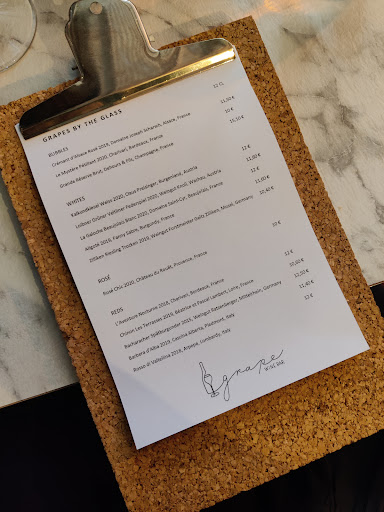 GRAPES BY THE GLASS
12 CL
BUBBLES
Crémant d'Alsace Rosé 2019, Domaine Joseph Scharsch, Alsace, France 11,00 €
Le Mystère Pétillant 2020, Charivari, Bordeaux, France 10 €
Grande Réserve Brut, Delbourg & Fils, Champagne, France 15,10 €
WHITES
Kalkundkiesel Weiss 2020, Claus Preisinger, Burgenland, Austria 12 €
Loibner Grüner Veltliner Federspiel 2020, Weingut Knoll, Wachau, Austria 11,80 €
La Galoche Beaujolais Blanc 2020, Domaine Saint-Cyr, Beaujolais, France 12 €
Aligoté 2019, Fanny Sabre, Burgundy, France 11,00 €
Zilliken Riesling Trocken 2019, Weingut Forstmeister Geltz Zilliken, Mosel, Germany 10,40 €
ROSÉ
Rosé Chic 2020, Château du Rouët, Provence, France 10 €
REDS
L'Aventure Nocturne 2019, Charivari, Bordeaux, France 12 €
Chinon Les Terrasses 2019, Béatrice et Pascal Lambert, Loire, France 10,60 €
Bacharacher Spätburgunder 2015, Weingut Ratzenberger, Mittelrhein, Germany 12,00 €
Barbera d'Alba 2019, Cascina Alberta, Piedmont, Italy 11,40 €
Rosso di Valtellina 2019, Arpepe, Lombardy, Italy 12 €
grape
WINE BAR